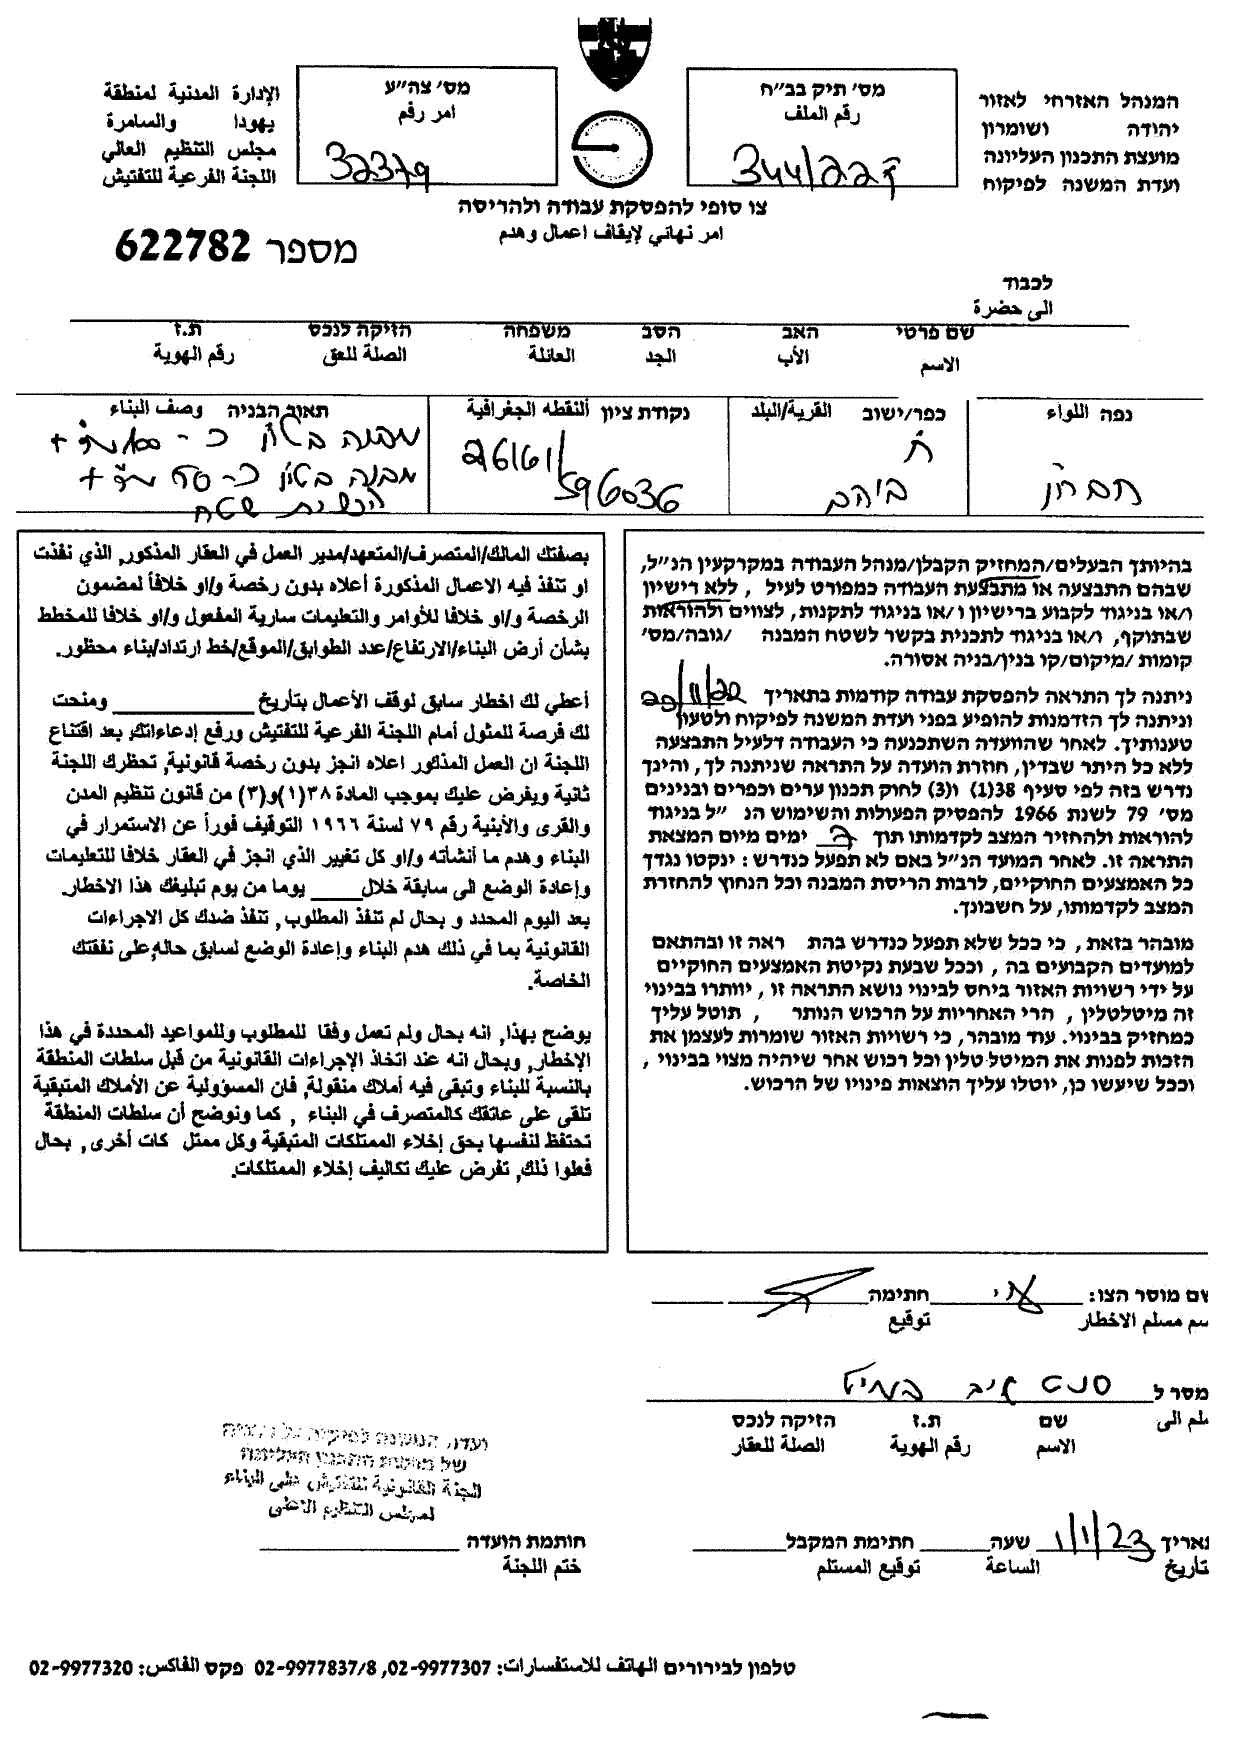 המנהל האזרחי לאזור
יהודה ושומרון
מועצת התכנון העליונה
ועדת המשנה לפיקוח
מס׳ תיק בב״ח
رقم الملف
344/22
מס׳ צה״ע
امر رقم
32379
הإدارة المدنية لمنطقة
يهودا والسامرة
مجلس التنظيم العالي
اللجنة الفرعية للتفتيش
צו סופי להפסקת עבודה ולהריסה
امر نهائي لإيقاف اعمال وهدم
מספר 622782
לכבוד
الى حضرة
שם פרטי האב הסב משפחה הזיקה לנכס ת.ז
الاسم الأب الجد العائلة الصلة للعق رقم الهوية
נפה اللواء
חברון
כפר/ישוב القرية/البلد
ח׳
נקודת ציון النقطه الجغرافية
26161/
596036
תאור הבניה وصف البناء
מבנה בטון כ- מ״ר +
מבנה בטון כ- 50 מ״ר +
הכשרת שטח
בהיותך הבעלים/המחזיק הקבלן/מנהל העבודה במקרקעין הנ״ל,
שבהם התבצעה או מתבצעת העבודה כמפורט לעיל , ללא רישיון
ו/או בניגוד לקבוע ברישיון ו /או בניגוד לתקנות, לצווים ולהוראות
שבתוקף, ו/או בניגוד לתכנית בקשר לשטח המבנה /גובה/מס׳
קומות /מיקום/קו בנין/בניה אסורה.
ניתנה לך התראה להפסקת עבודה קודמות בתאריך 22/11/22
וניתנה לך הזדמנות להופיע בפני ועדת המשנה לפיקוח ולטעון
טענותיך. לאחר שהוועדה השתכנעה כי העבודה דלעיל התבצעה
ללא כל היתר שבדין, חוזרת הועדה על התראה שניתנה לך, והינך
נדרש בזה לפי סעיף 38(1) ו(3) לחוק תכנון ערים וכפרים ובנינים
מס׳ 79 לשנת 1966 להפסיק הפעולות והשימוש הנ ״ל בניגוד
להוראות ולהחזיר המצב לקדמותו תוך 7 ימים מיום המצאת
התראה זו. לאחר המועד הנ״ל באם לא תפעל כנדרש : ינקטו נגדך
כל האמצעים החוקיים, לרבות הריסת המבנה וכל הנחוץ להחזרת
המצב לקדמותו, על חשבונך.
מובהר בזאת , כי ככל שלא תפעל כנדרש בהת ראה זו ובהתאם
למועדים הקבועים בה , וככל שבעת נקיטת האמצעים החוקיים
על ידי רשויות האזור ביחס לבינוי נושא התראה זו , יוותרו בבינוי
זה מיטלטלין , הרי האחריות על הרכוש הנותר , תוטל עליך
כמחזיק בבינוי. עוד מובהר, כי רשויות האזור שומרות לעצמן את
הזכות לפנות את המיטל טלין וכל רכוש אחר שיהיה מצוי בבינוי ,
וככל שיעשו כן, יוטלו עליך הוצאות פינויו של הרכוש.
بصفتك المالك/المتصرف/المتعهد/مدير العمل في العقار المذكور, الذي نفذت
او تنفذ فيه الاعمال المذكورة أعلاه بدون رخصة و/او خلافاً لمضمون
الرخصة و/او خلافا للأوامر والتعليمات سارية المفعول و/او خلافا للمخطط
بشأن أرض البناء/الارتفاع/عدد الطوابق/الموقع/خط ارتداد/بناء محظور.
أعطي لك اخطار سابق لوقف الأعمال بتأريخ ____________ ومنحت
لك فرصة للمثول أمام اللجنة الفرعية للتفتيش ورفع إدعاءاتك, بعد اقتناع
اللجنة ان العمل المذكور اعلاه انجز بدون رخصة قانونية, تحظرك اللجنة
ثانية ويفرض عليك بموجب المادة ٣٨(١)و(٣) من قانون تنظيم المدن
والقرى والأبنية رقم ٧٩ لسنة ١٩٦٦ التوقيف فوراً عن الاستمرار في
البناء وهدم ما أنشأته و/او كل تغيير الذي انجز في العقار خلافا للتعليمات
وإعادة الوضع الى سابقة خلال____يوما من يوم تبليغك هذا الاخطار.
بعد اليوم المحدد و بحال لم تنفذ المطلوب, تنفذ ضدك كل الاجراءات
القانونية بما في ذلك هدم البناء وإعادة الوضع لسابق حاله,على نفقتك
الخاصة.
يوضح بهذا, انه بحال ولم تعمل وفقا للمطلوب وللمواعيد المحددة في هذا
الإخطار, وبحال انه عند اتخاذ الإجراءات القانونية من قبل سلطات المنطقة
بالنسبة للبناء وتبقى فيه أملاك منقولة, فان المسؤولية عن الأملاك المتبقية
تلقى على عاتقك كالمتصرف في البناء , كما ونوضح أن سلطات المنطقة
تحتفظ لنفسها بحق إخلاء الممتلكات المتبقية وكل ممتل كات أخرى, بحال
فعلوا ذلك, تفرض عليك تكاليف إخلاء الممتلكات.
שם מוסר הצו: חתימה
سم مسلم الاخطار توقيع
מסר ל
שם ת.ז הזיקה לנכס
سلم الى الاسم رقم الهوية الصلة للعقار
ועדת המשנה לפיקוח על הבניה
של מועצת התכנון העליונה
اللجنة القانونية للتفتيش على البناء
لمجلس التنظيم الاعلى
תאריך 1/1/23 שעה חתימת המקבל
تاريخ الساعة توقيع المستلم
חותמת הועדה
ختم اللجنة
טלפון לבירורים الهاتف للاستفسارات: 02-9977307, 02-9977837/8 פקס الفاكس: 02-9977320